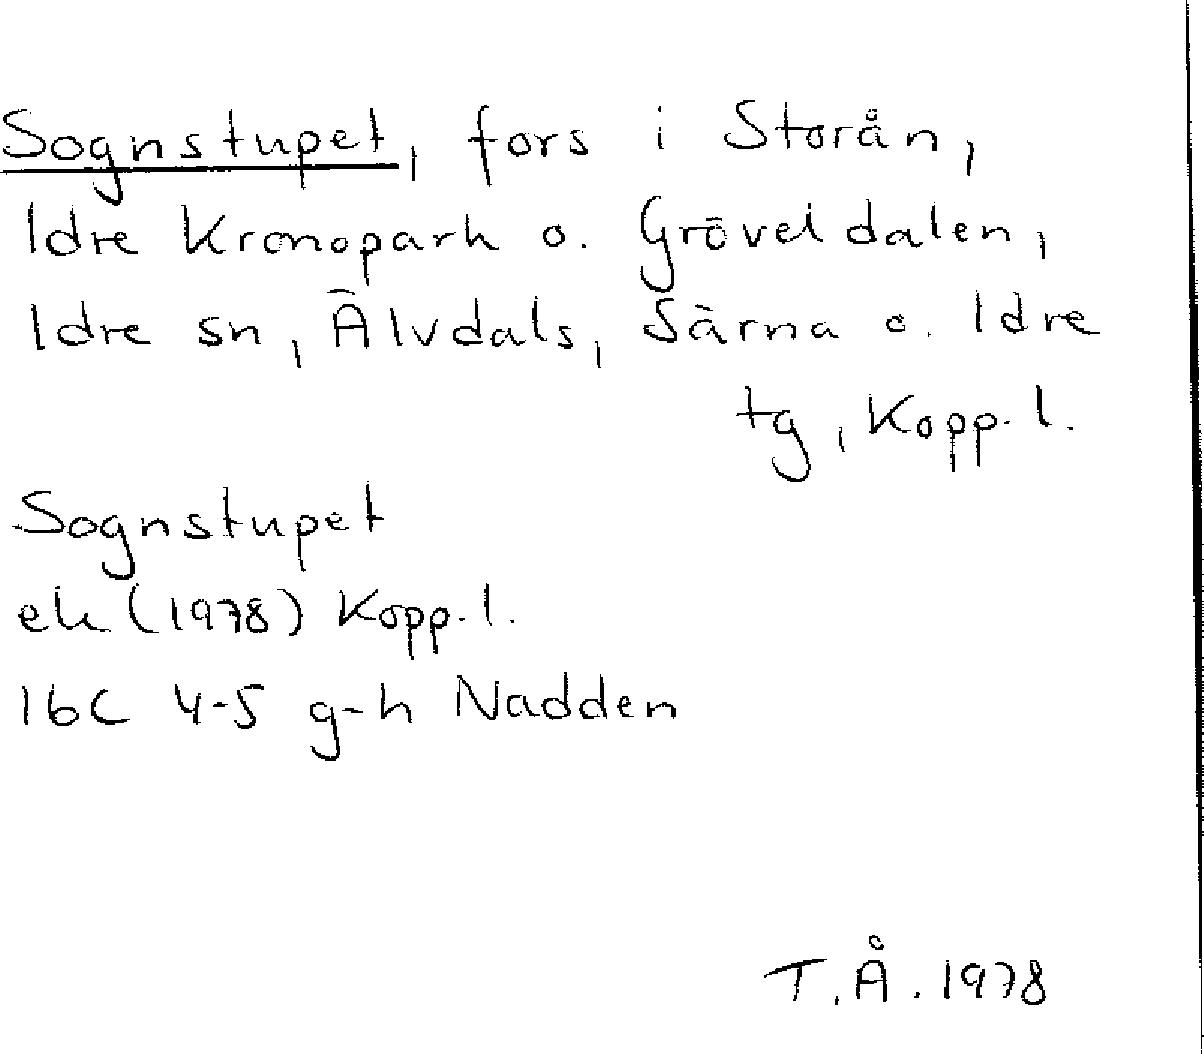 Sognstupet, fors i Storån,
Idre Kronopark o. Gröveldalen,
Idre sn, Älvdals, Särna o. Idre
tg, Kopp. l.
Sognstupet
ek (1978) Kopp. l.
16C 4-5 g-h Nadden
T.Å. 1978